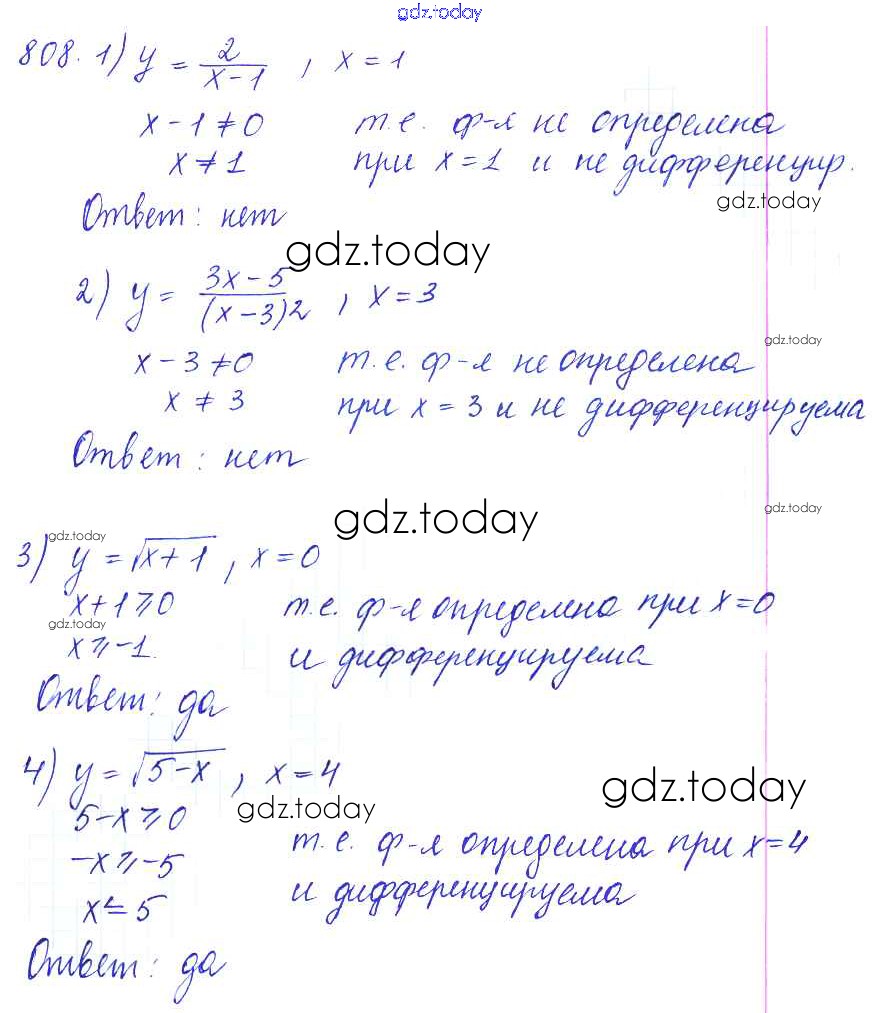 gdz.today
808. 1) y = 2/(x-1) , x=1
x-1≠0 т.е. ф-я не определена
x≠1 при x=1 и не дифференцир.
gdz.today
Ответ: нет
gdz.today
2) y = (3x-5)/(x-3)2 , x=3
gdz.today
x-3≠0 т.е. ф-я не определена
x≠3 при x=3 и не дифференцируема
Ответ: нет
gdz.today
gdz.today
gdz.today
3) y=√(x+1) , x=0
x+1⩾0 т.е. ф-я определена при x=0
gdz.today
x⩾-1. и дифференцируема
Ответ: да
4) y=√(5-x) , x=4
gdz.today
gdz.today
5-x⩾0
-x⩾-5 т.е. ф-я определена при x=4
x⩽5 и дифференцируема
Ответ: да